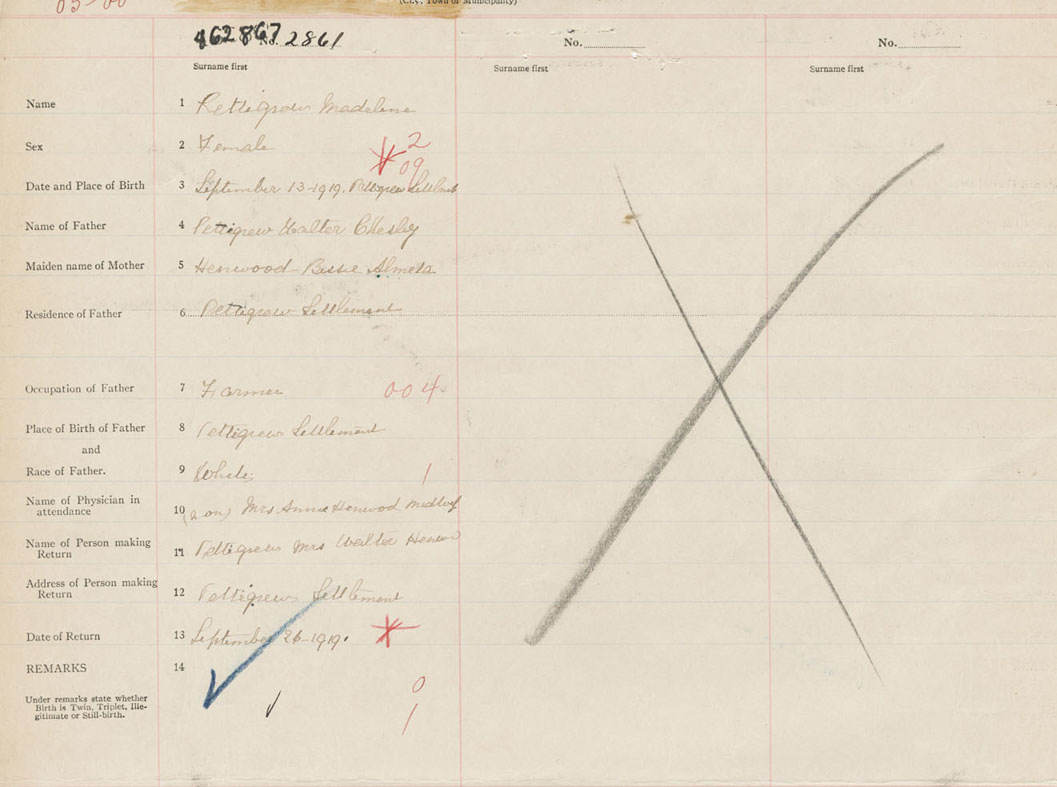 (City, Town or Municipality)
462867 No. 2861
No.
No.
Surname first
Surname first
Surname first
Name 1 Pettigrew Madelene
Sex 2 Female
2
09
Date and Place of Birth 3 September 13-1919, Pettigrew Settlmt
Name of Father 4 Pettigrew Walter Chesley
Maiden name of Mother 5 Henwood - Bessie Almeta
Residence of Father 6 Pettigrew Settlement
Occupation of Father 7 Farmer 004
Place of Birth of Father 8 Pettigrew Settlement
and
Race of Father. 9 White 1
Name of Physician in
attendance 10 Mrs Annie Henwood Midwife
Name of Person making
Return 11 Pettigrew Mrs Walter Henwood
Address of Person making
Return 12 Pettigrew Settlement
Date of Return 13 September 26-1919.
REMARKS 14
Under remarks state whether
Birth is Twin, Triplet, Ille-
gitimate or Still-birth.
0
1